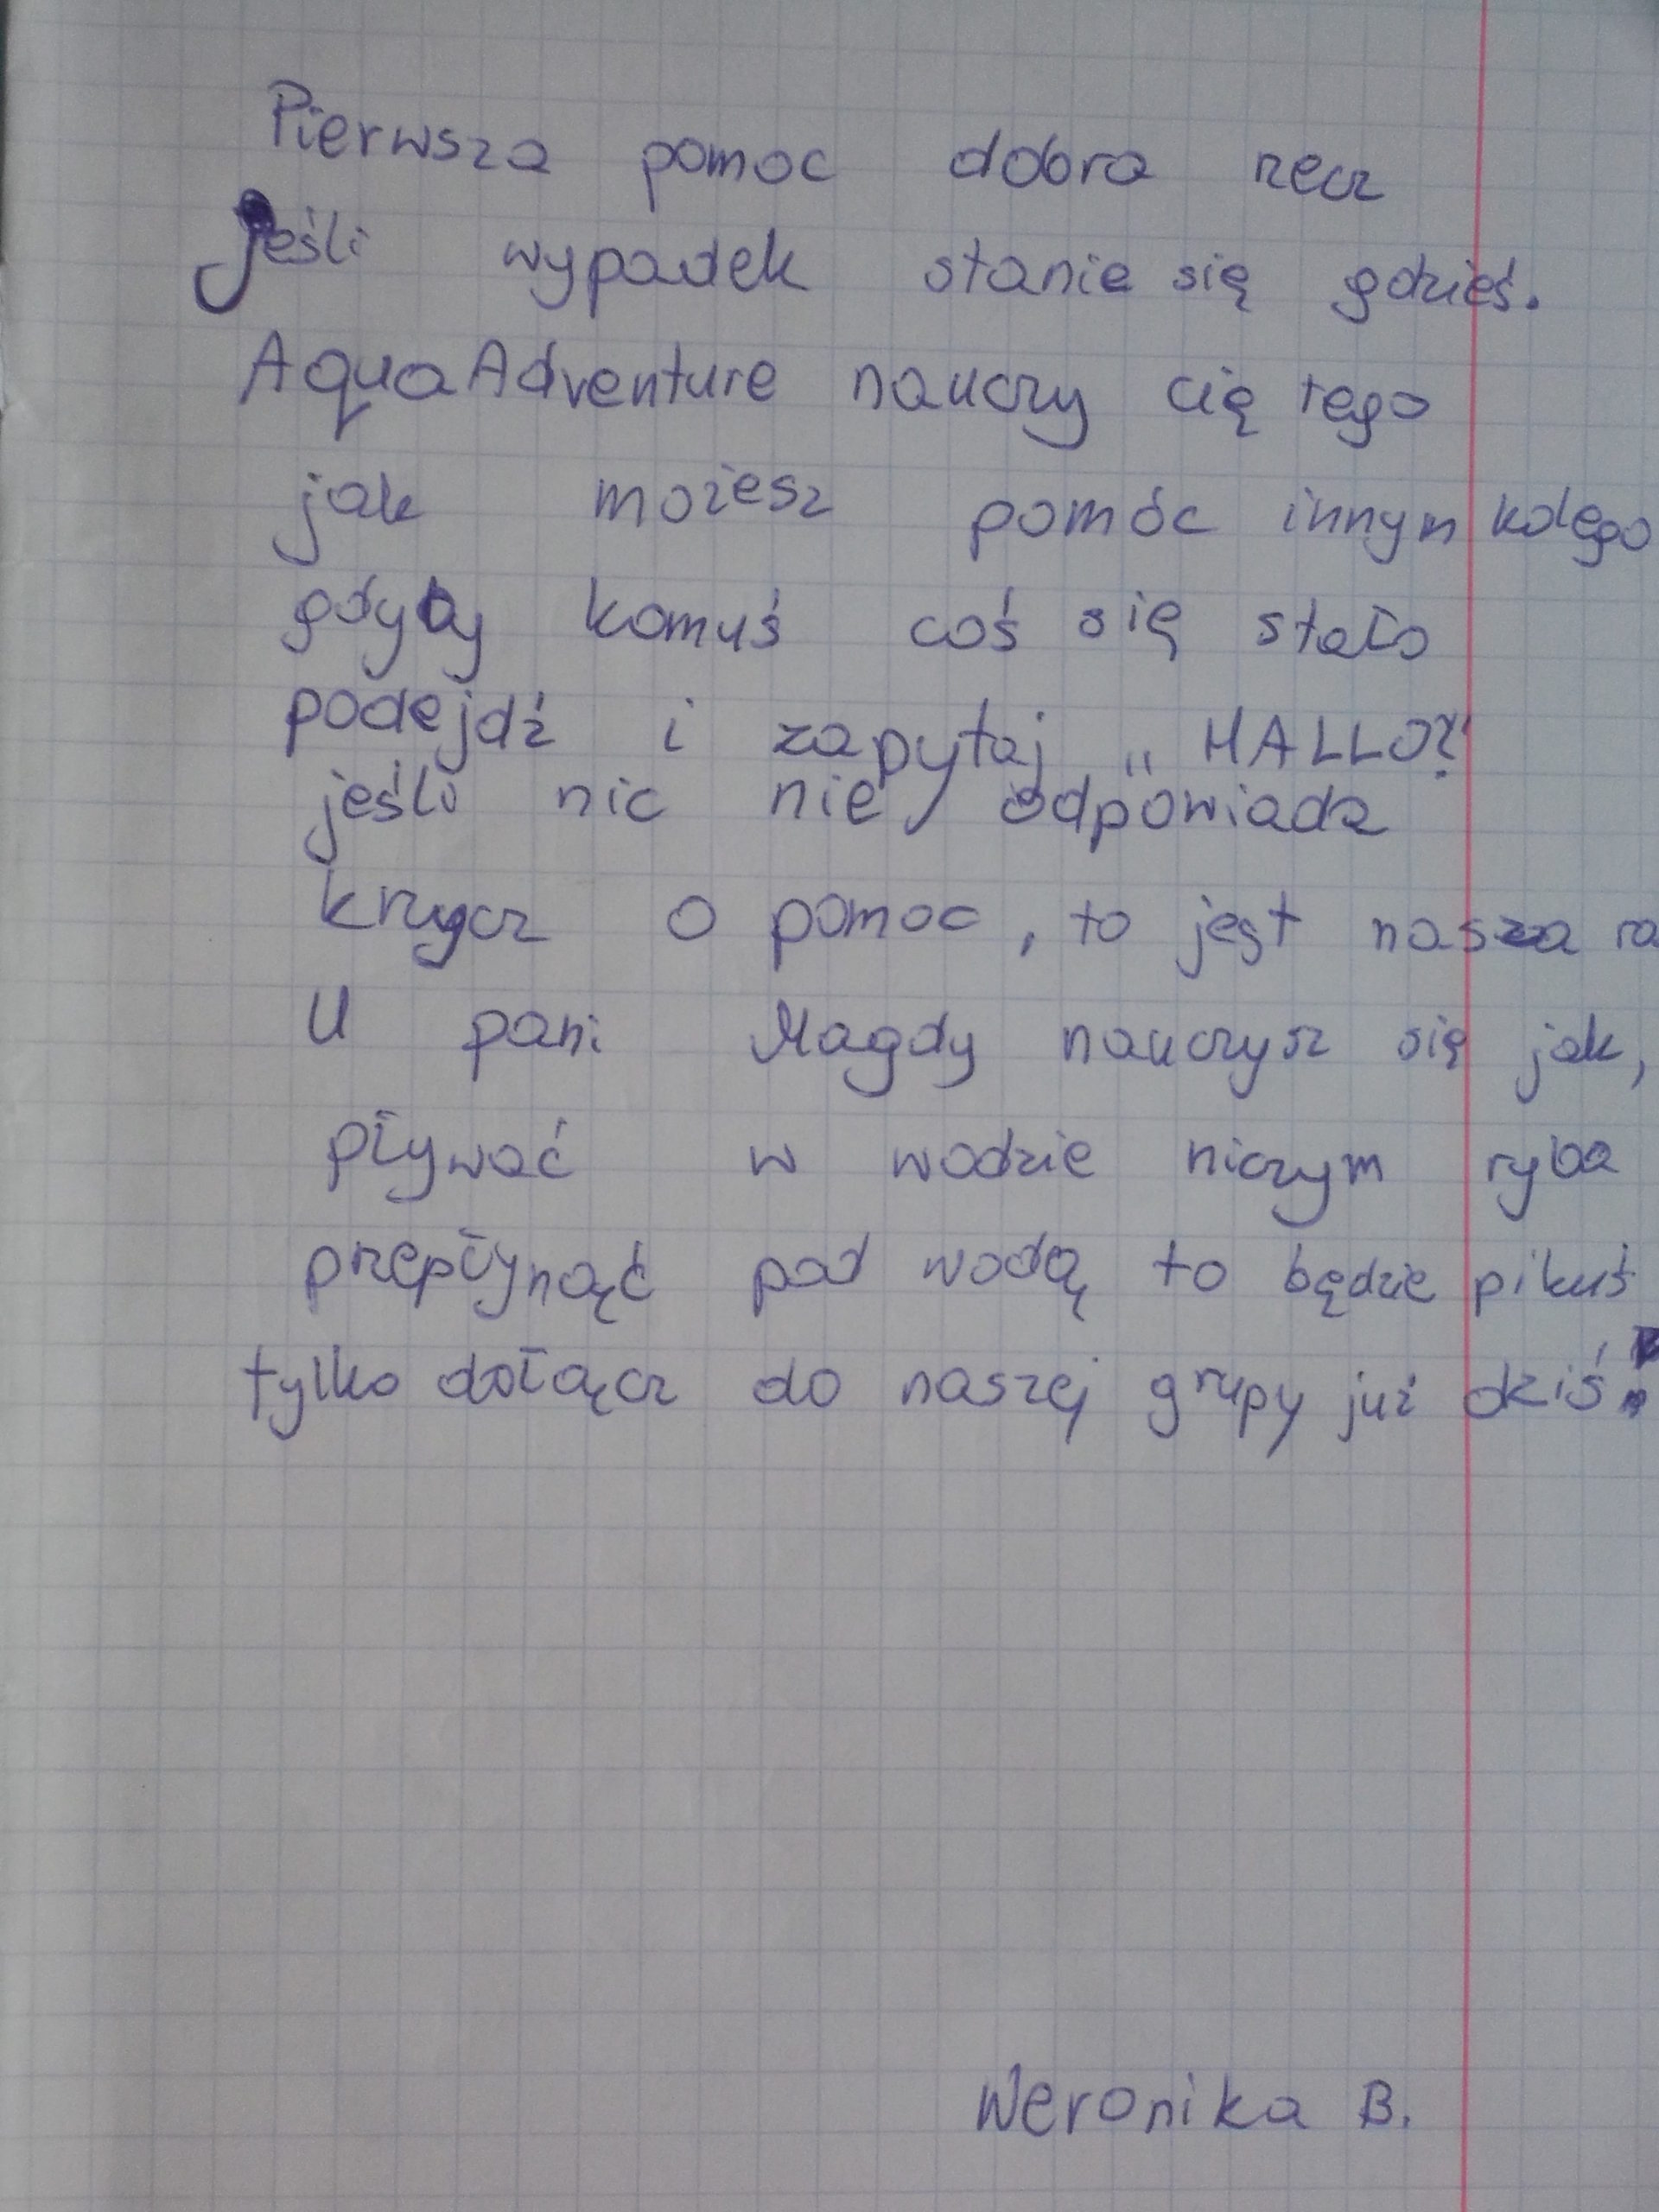 Pierwsza pomoc dobra rzecz
Jeśli wypadek stanie się gdzieś.
AquaAdventure nauczy cię tego
jak możesz pomóc innym kolego
gdyby komuś coś się stało
podejdź i zapytaj „HALLO?"
jeśli nic nie odpowiada
krzycz o pomoc, to jest nasza ra
U pani Magdy nauczysz się jak,
pływać w wodzie niczym ryba
przepłynąć pod wodą to będzie pikuś
tylko dołącz do naszej grupy już dziś!
Weronika B.